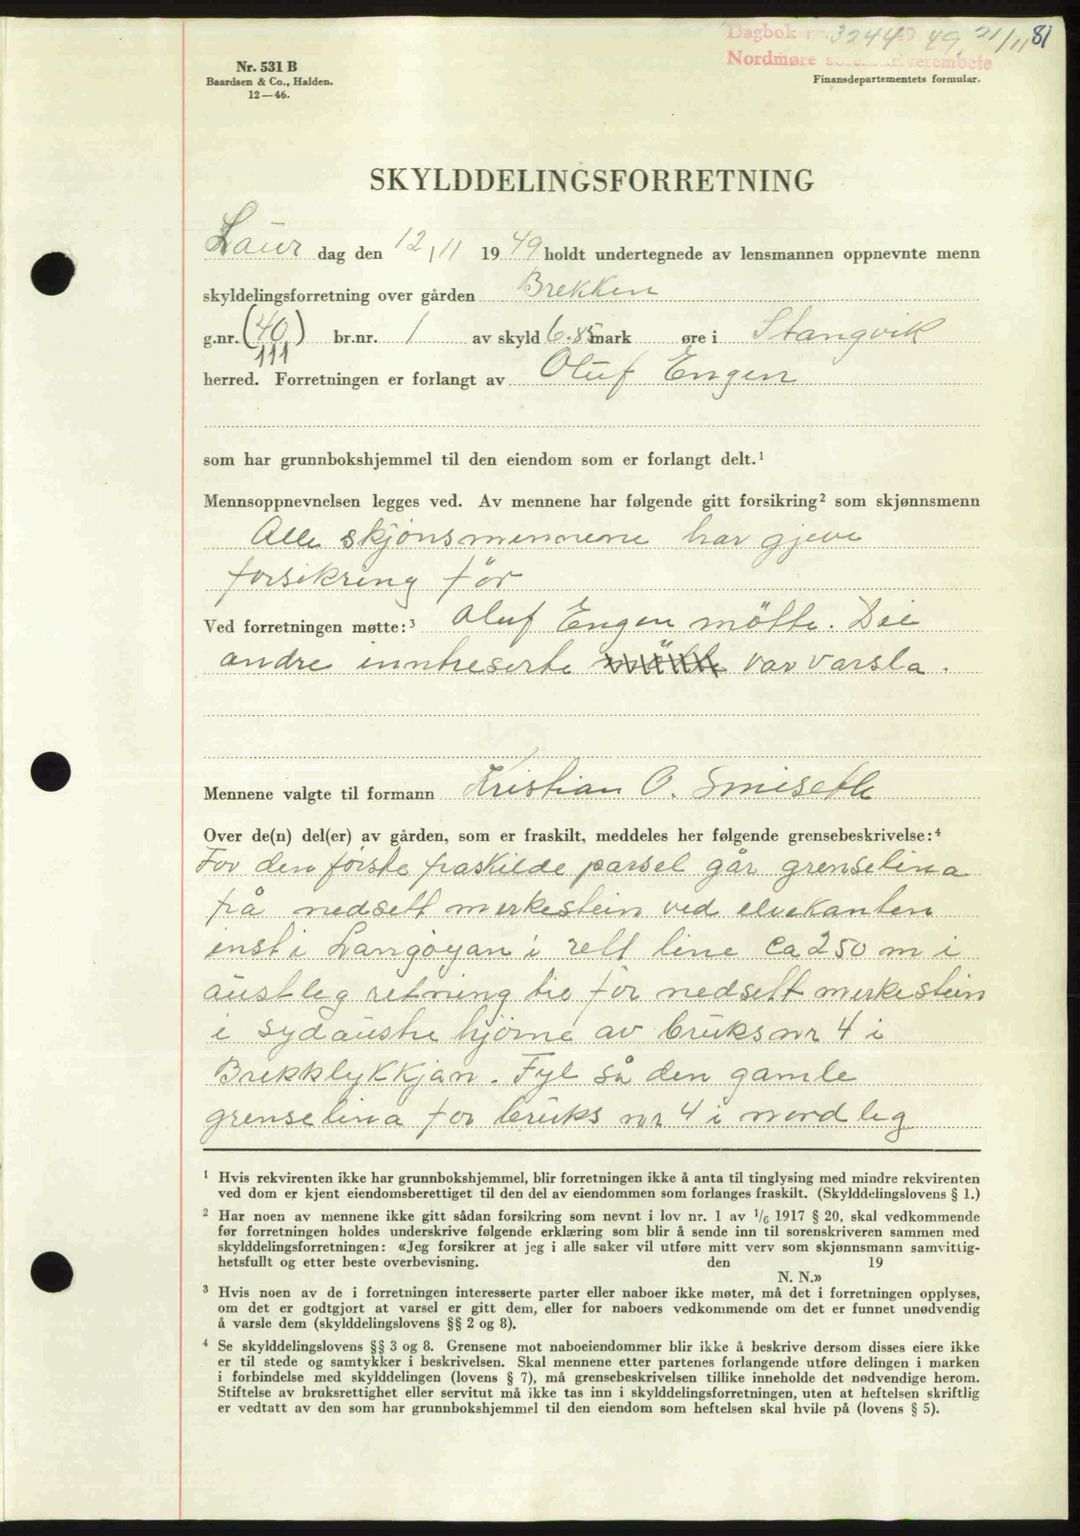 Dagbok nr. 3244 19 49, 21/11 81
Nordmøre sorenskriverembete
Nr. 531 B
Baardsen & Co., Halden.
12—46.
Finansdepartementets formular.
SKYLDDELINGSFORRETNING
Laur dag den 12/11 1949 holdt undertegnede av lensmannen oppnevnte menn
skyldelingsforretning over gården Brekken
g.nr. (40) br.nr. 1 av skyld 6.85 mark øre i Stangvik
111
herred. Forretningen er forlangt av Oluf Engen
som har grunnbokshjemmel til den eiendom som er forlangt delt.¹
Mennsoppnevnelsen legges ved. Av mennene har følgende gitt forsikring² som skjønnsmenn
Alle skjönsmennene har gjeve
forsikring för
Ved forretningen møtte:³ Oluf Engen mötte. Dei
andre inntreserte var varsla.
Mennene valgte til formann Kristian O. Smiseth
Over de(n) del(er) av gården, som er fraskilt, meddeles her følgende grensebeskrivelse:⁴
For den förste fraskilde parsel går grenselina
frå nedsett merkestein ved elvekanten
inst i Langöyan i rett line ca 250 m i
austleg retning til för nedsett merkestein
i sydaustre hjörne av bruksnr 4 i
Brekklykkjan. Fyl så den gamle
grenselina for bruks nr 4 i nordleg
¹ Hvis rekvirenten ikke har grunnbokshjemmel, blir forretningen ikke å anta til tinglysing med mindre rekvirenten
ved dom er kjent eiendomsberettiget til den del av eiendommen som forlanges fraskilt. (Skylddelingslovens § 1.)
² Har noen av mennene ikke gitt sådan forsikring som nevnt i lov nr. 1 av 1/6 1917 § 20, skal vedkommende
før forretningen holdes underskrive følgende erklæring som blir å sende inn til sorenskriveren sammen med
skylddelingsforretningen: «Jeg forsikrer at jeg i alle saker vil utføre mitt verv som skjønnsmann samvittig-
hetsfullt og etter beste overbevisning. den 19
N. N.»
³ Hvis noen av de i forretningen interesserte parter eller naboer ikke møter, må det i forretningen opplyses,
om det er godtgjort at varsel er gitt dem, eller for naboers vedkommende om det er funnet unødvendig
å varsle dem (skylddelingslovens §§ 2 og 8).
⁴ Se skylddelingslovens §§ 3 og 8. Grensene mot naboeiendommer blir ikke å beskrive dersom disses eiere ikke
er til stede og samtykker i beskrivelsen. Skal mennene etter partenes forlangende utføre delingen i marken
i forbindelse med skylddelingen (lovens § 7), må grensebeskrivelsen tillike inneholde det nødvendige herom.
Stiftelse av bruksrettighet eller servitut må ikke tas inn i skylddelingsforretningen, uten at heftelsen skriftlig
er vedtatt av den som har grunnbokshjemmel til den eiendom som heftelsen skal hvile på (lovens § 5).